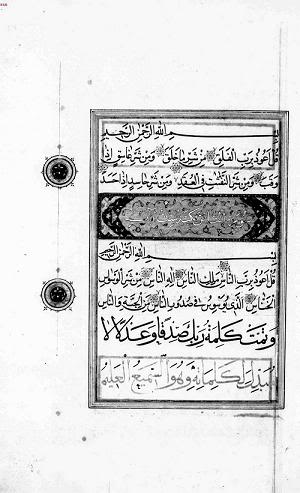 بسم الله الرحمن الرحيم
قل اعوذ برب الفلق من شر ما خلق ومن شر غاسق اذا
وقب ومن شر النفثت في العقد ومن شر حاسد اذا حسد
بسم الله الرحمن الرحيم
قل اعوذ برب الناس ملك الناس اله الناس من شر الوسواس
الخناس الذي يوسوس في صدور الناس من الجنة والناس
وتمت كلمة ربك صدقا وعدلا لا
مبدل لكلماته وهو السميع العليم